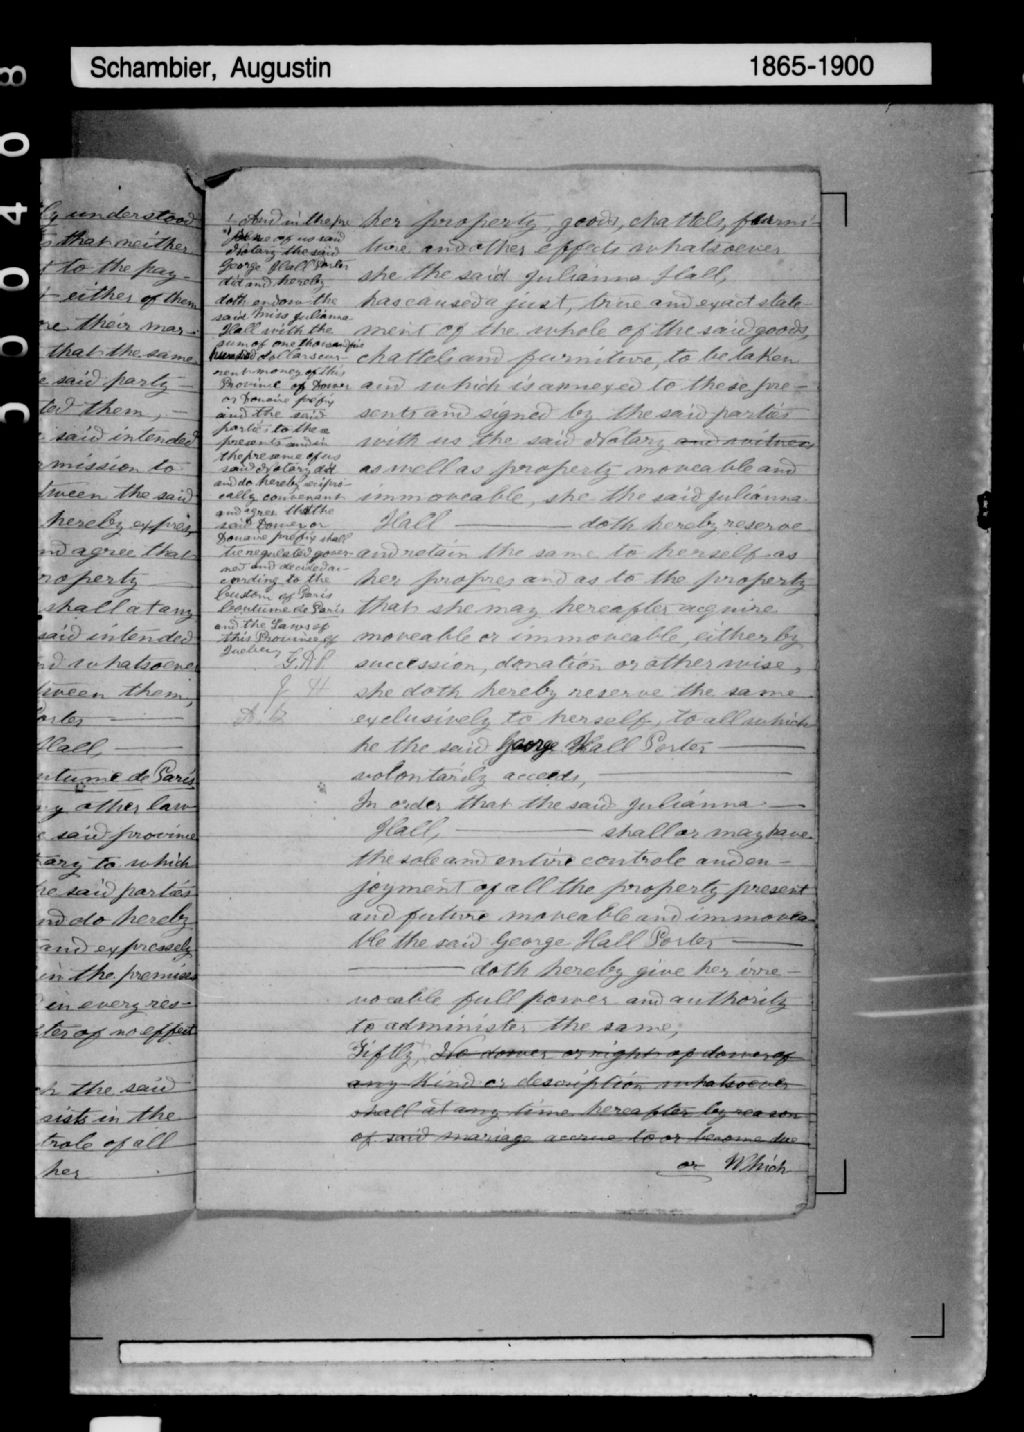 Schambier, Augustin 1865-1900
00408
ly understood
that neither
t to the pay-
either of them
re their mar-
that the same
e said party
ted them,
said intended
rmission to
tween the said
hereby express
nd agree that
roperty
shall at any
said intended
nd whatsoever
tween them,
Porter
Hall,
utume de Paris
y other law
e said province
ary to which
he said parties
nd do hereby
and expressly
in the premises
in every res-
ter of no effect
h the said
sists in the
trole of all
her
! And in the pre
sence of us said
Notary the said
George Hall Porter
did and hereby
doth endow the
said Miss Julianna
Hall with the
sum of one thousand five
hundred dollars cur-
rent money of this
Province of Dower
or Douaire prefix
and the said
parties to these
presents and in
the presence of us
said Notary did
and do hereby recipro-
cally convenant
and agree that the
said Dower or
Douaire prefix shall
be regulated gover-
ned and decided ac-
cording to the
Custom of Paris
Coutume de Paris
and the Laws of
this Province of
Quebec
G.H.P.
J H
A. S.
her property goods, chattels, furni-
ture and other effects whatsoever
she the said Julianna Hall,
has caused a just, true and exact state-
ment of the whole of the said goods,
chattels and furniture, to be taken
and which is annexed to these pre-
sents and signed by the said parties
with us the said Notary and witness
as well as property moveable and
immoveable, she the said Julianna
Hall doth hereby reserve
and retain the same to herself as
her propres and as to the property
that she may hereafter acquire
moveable or immoveable, either by
succession, donation or otherwise,
she doth hereby reserve the same
exclusively to herself, to all which
he the said George Hall Porter
volontarily acceeds,
In order that the said Julianna
Hall, shall or may have
the sole and entire controle and en-
joyment of all the property present
and future moveable and immovea-
ble the said George Hall Porter
doth hereby give her irre-
vocable full power and authority
to administer the same;
Fiftly, No dower or right of dower of
any kind or description whatsoever
shall at any time hereafter by reason
of said mariage accrue to or become due
or Which